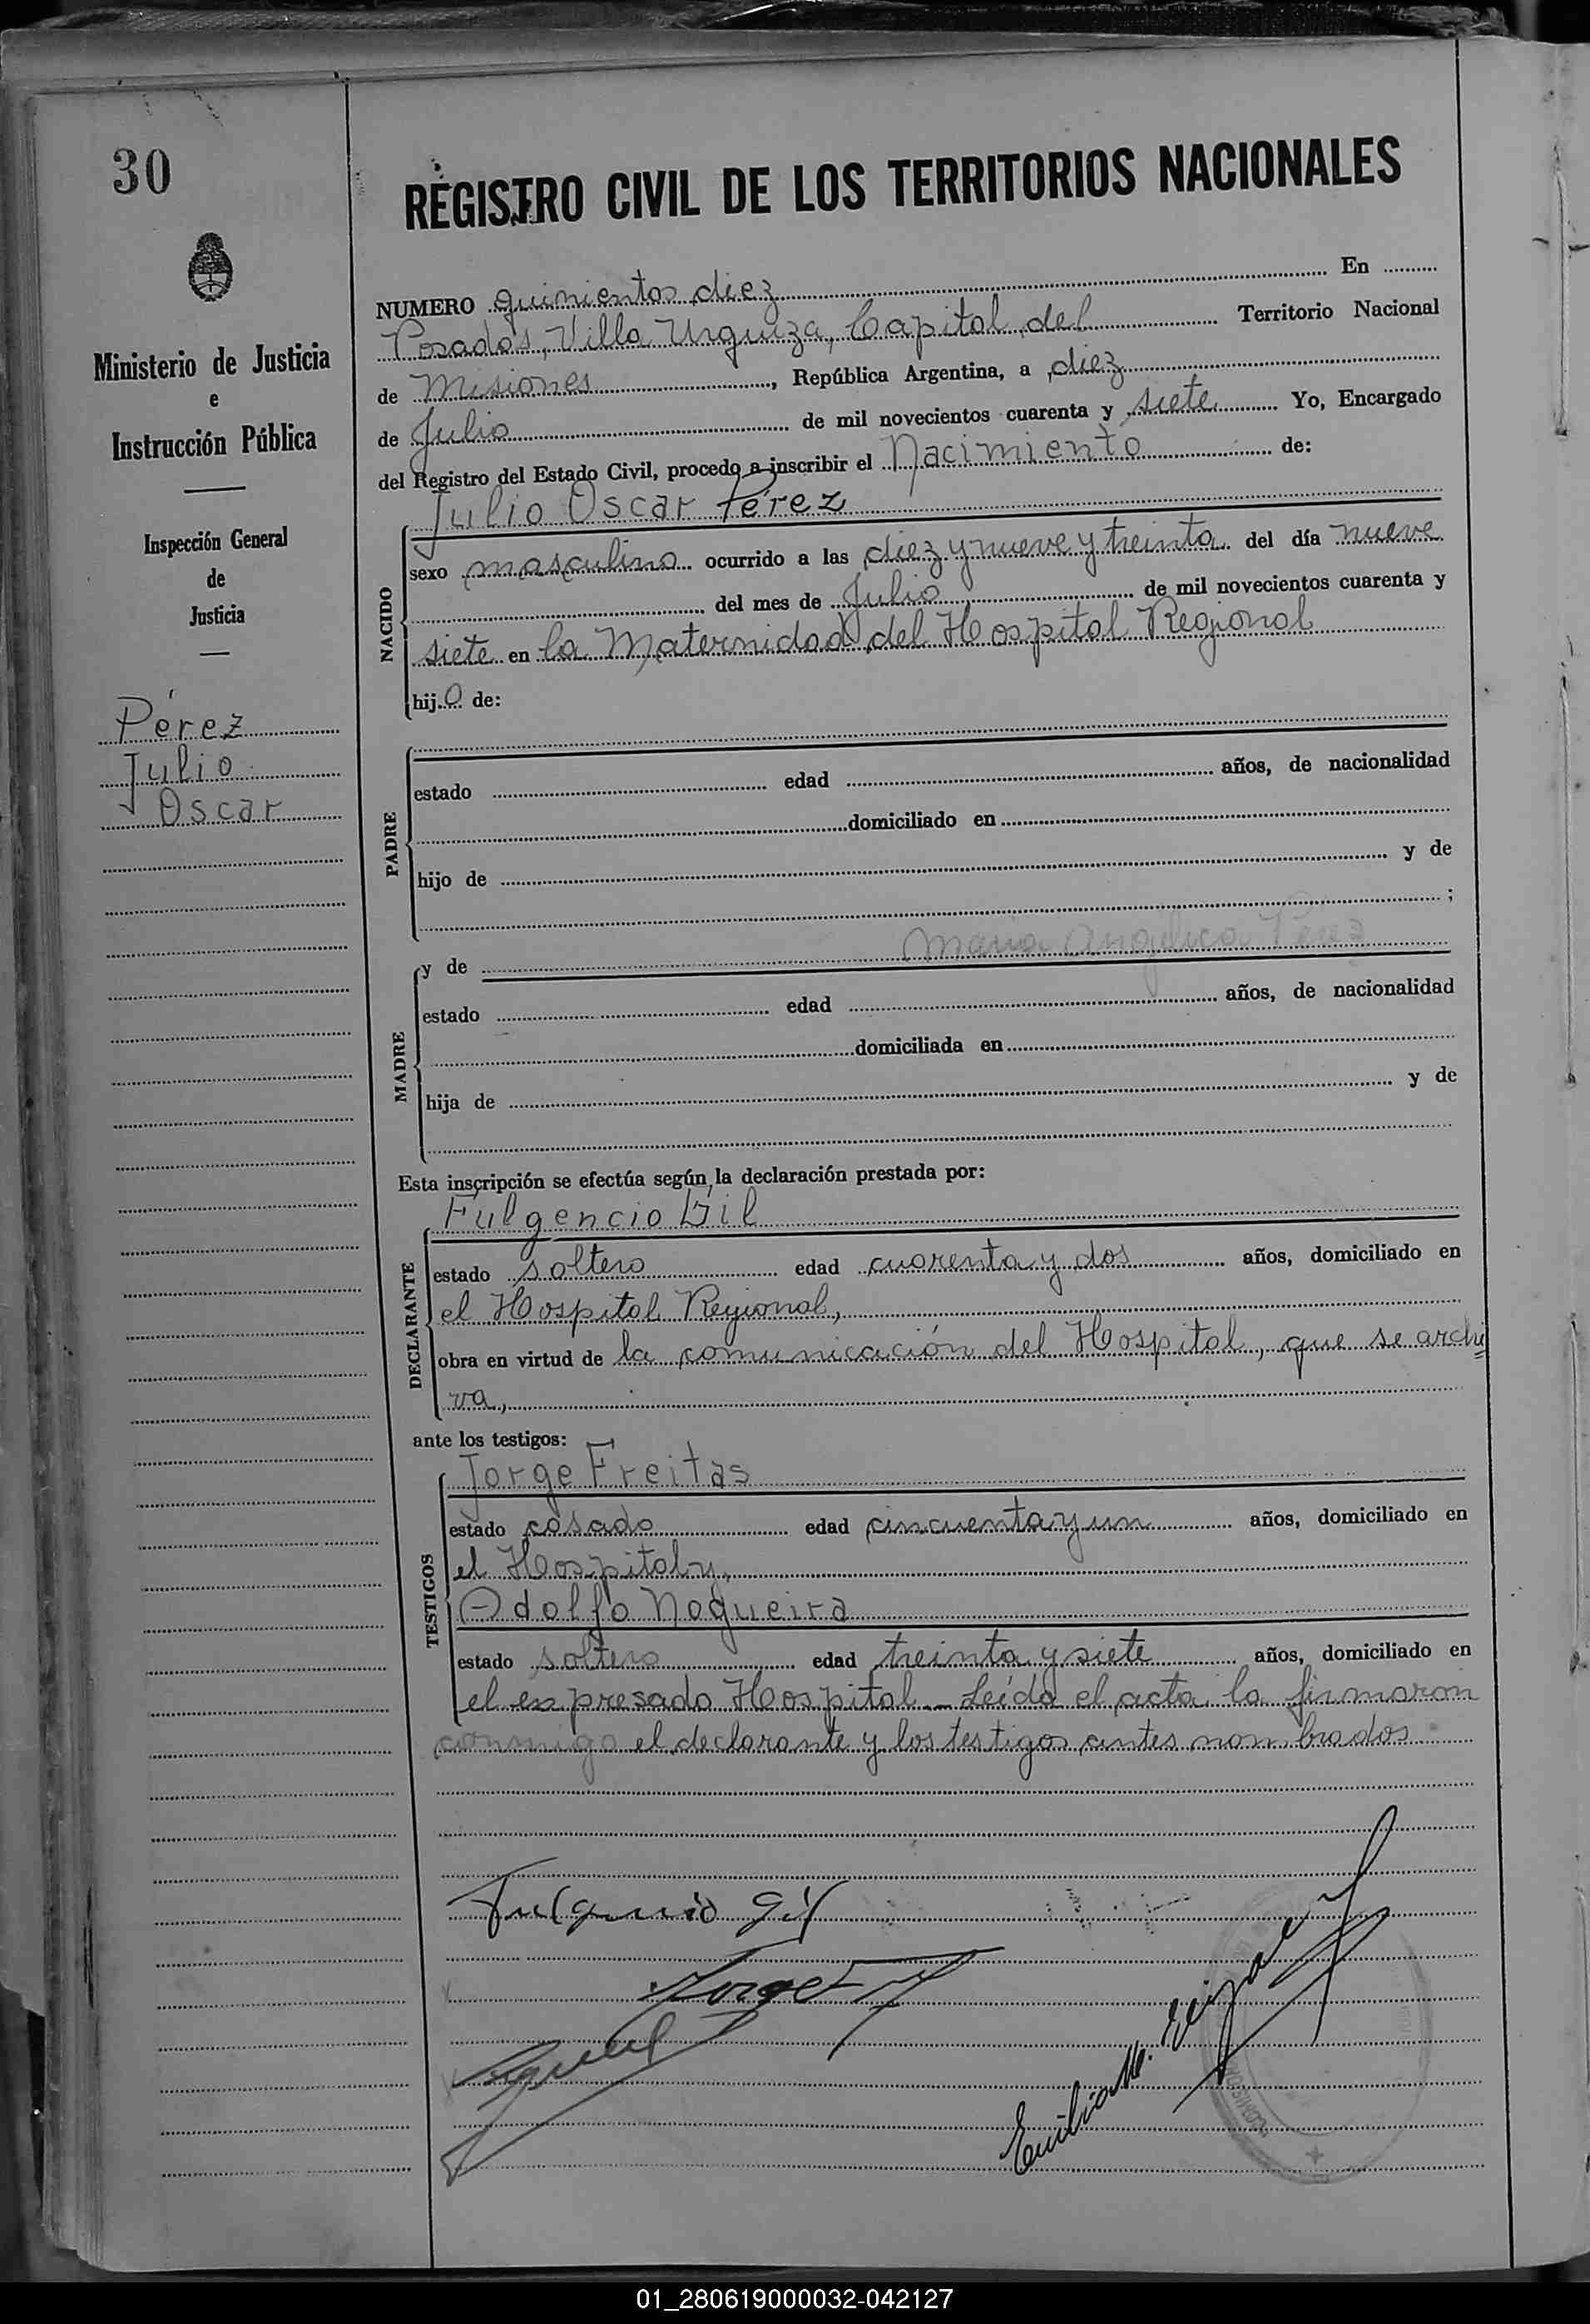 30
REGISTRO CIVIL DE LOS TERRITORIOS NACIONALES
Ministerio de Justicia
e
Instrucción Pública
Inspección General
de
Justicia
Pérez
Julio
Oscar
NUMERO quinientos diez En
Posadas, Villa Urquiza, Capital del Territorio Nacional
de Misiones, República Argentina, a diez
de Julio de mil novecientos cuarenta y siete Yo, Encargado
del Registro del Estado Civil, procedo a inscribir el Nacimiento de:
Julio Oscar Pérez
NACIDO
sexo masculino ocurrido a las diez y nueve y treinta del día nueve
del mes de Julio de mil novecientos cuarenta y
siete en la Maternidad del Hospital Regional
hijo de:
PADRE
estado edad años, de nacionalidad
domiciliado en
hijo de y de
;
MADRE
y de María Angélica Pérez
estado edad años, de nacionalidad
domiciliada en
hija de y de
Esta inscripción se efectúa según la declaración prestada por:
Fulgencio Gil
DECLARANTE
estado soltero edad cuarenta y dos años, domiciliado en
el Hospital Regional,
obra en virtud de la comunicación del Hospital, que se archi=
va,
ante los testigos:
Jorge Freitas
TESTIGOS
estado casado edad cincuenta y un años, domiciliado en
el Hospital y,
Adolfo Nogueira
estado soltero edad treinta y siete años, domiciliado en
el expresado Hospital_ Leída el acta la firmaron
conmigo el declarante y los testigos antes nombrados.
Fulgencio Gil
Jorge F
Emilio M.
01_280619000032-042127